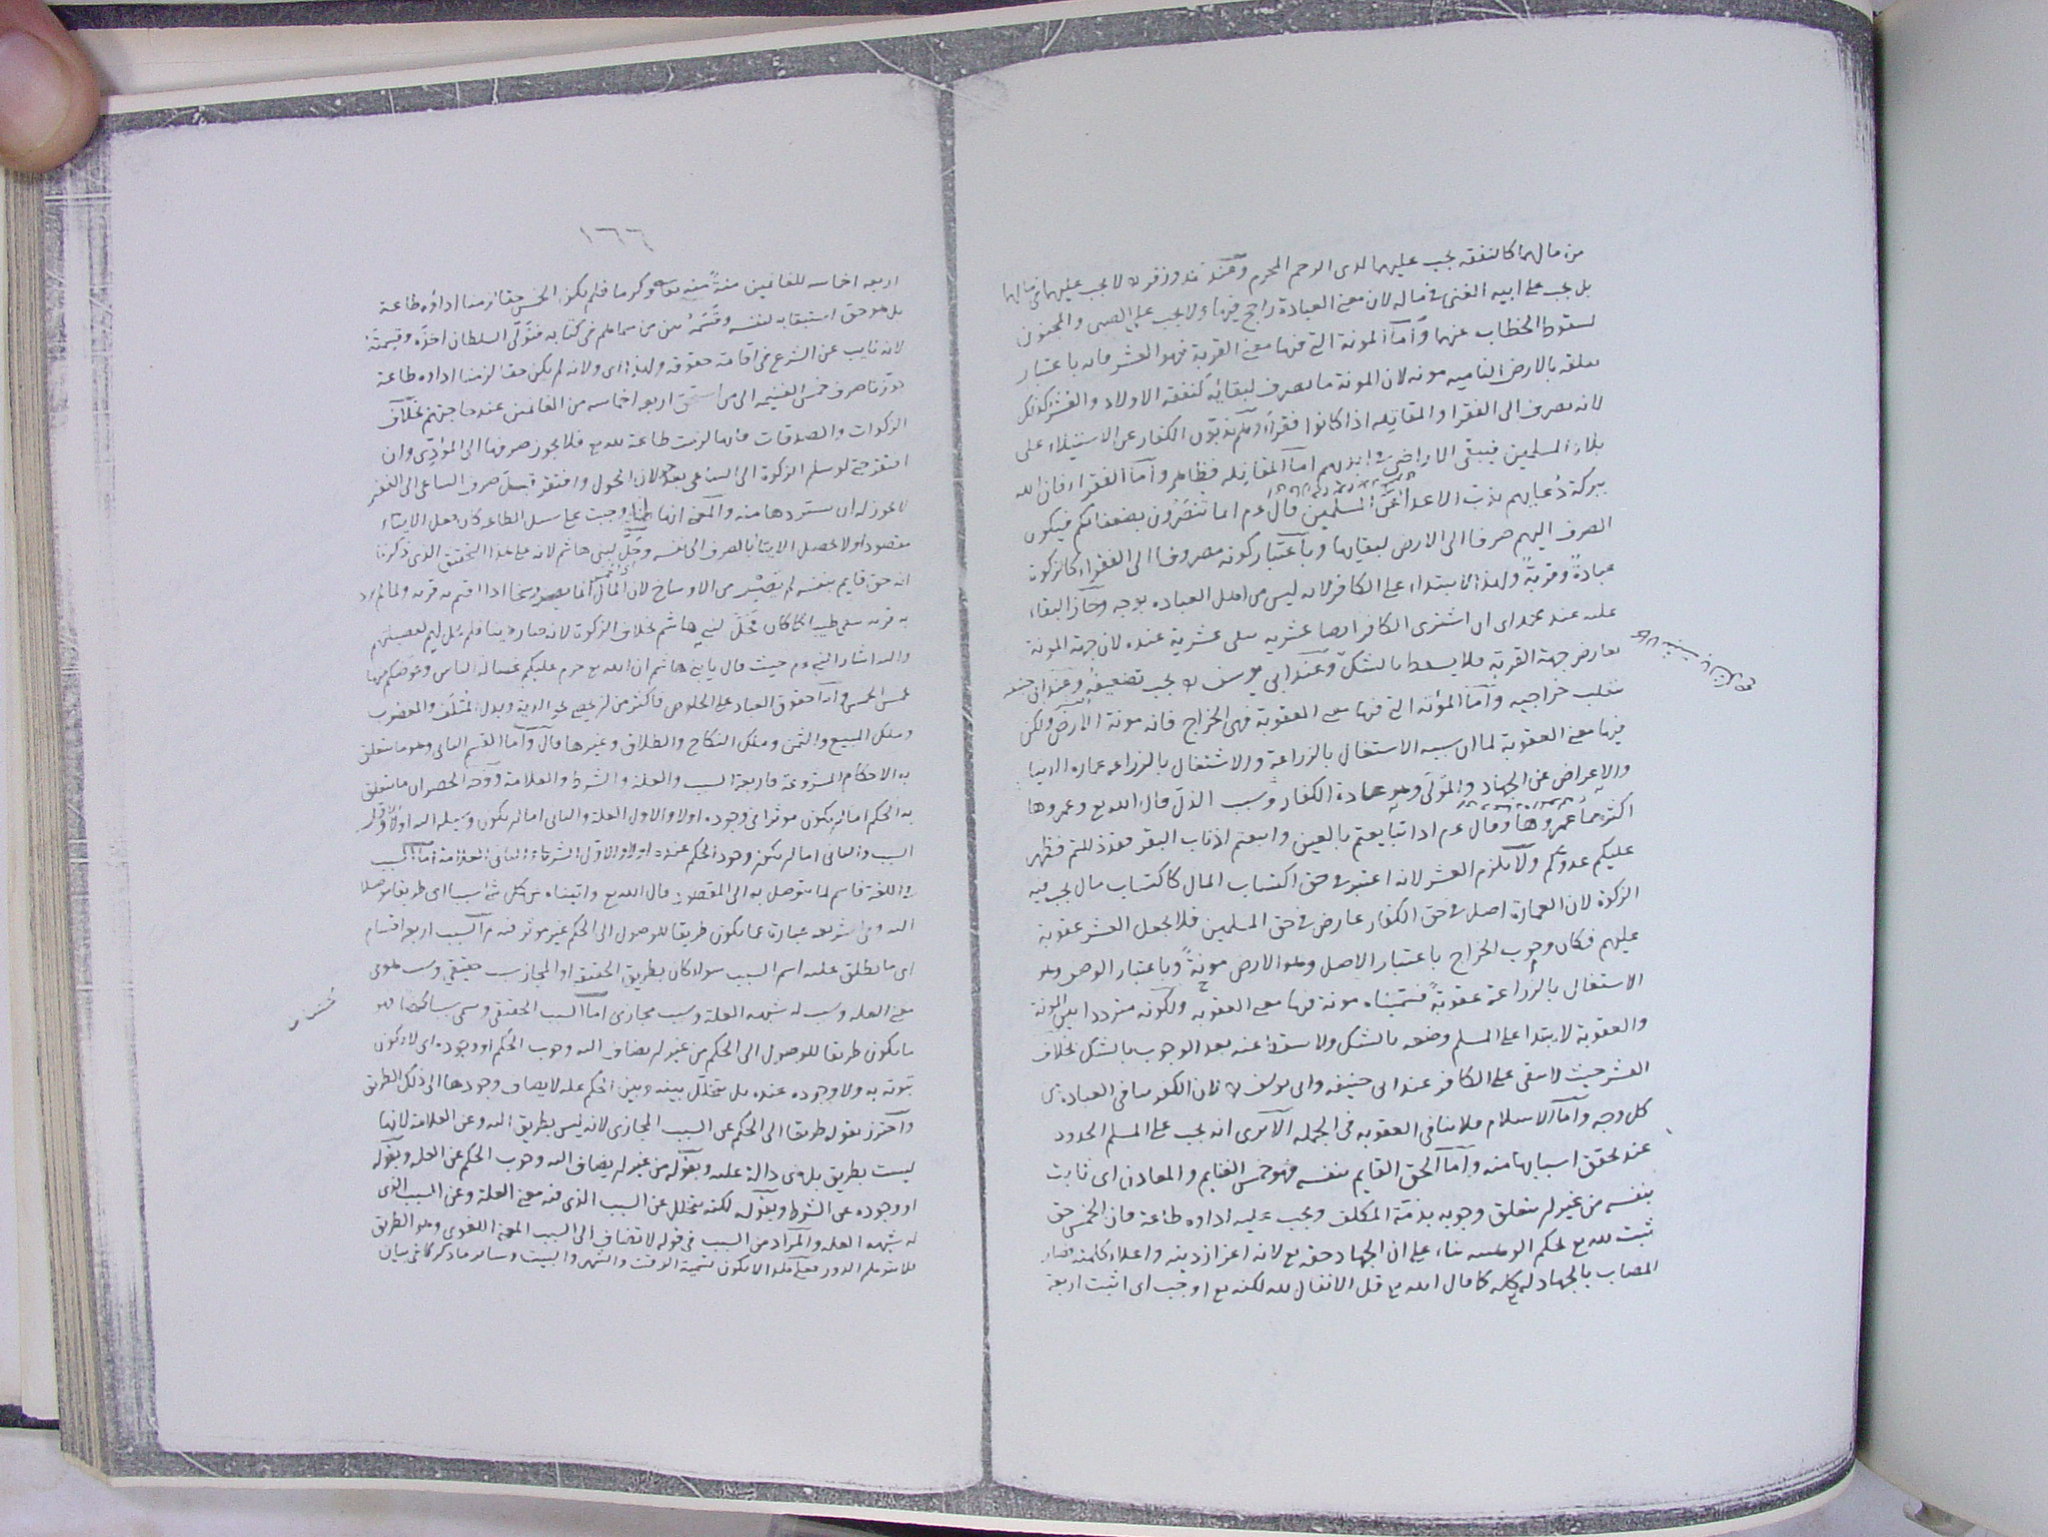 من مالهما كالنفقه يجب عليهما لذى الرحم المحرم وعند محمد وزفر لا يجب عليهما فى مالهما
بل يجب على ابيه الغنى فى ماله لان معنى العبادة راجح فيها ولا يجب على الصبى والمجنون
لسقوط الخطاب عنهما واما المونة التى فيها معنى القربة فهو العشر فانه باعتبار
تعلقه بالارض الناميه مونه لان المونة ما يصرف لبقائه كنفقه الاولاد والعشر كذلك
لانه يصرف الى الفقرا والمقاتله اذا كانوا فقراء وهم يذبون الكفار عن الاستيلاء على
بلاد المسلمين فيبقى الاراضى فى ايديهم اما المقاتله فظاهر واما الفقراء فان الله
ببركة دعايهم يذب الاعدا عن المسلمين قال عم انما تنصرون بضعفائكم فيكون
الصرف اليهم صرفا الى الارض لبقايها وباعتبار كونه مصروفا الى الفقراء كالزكوة
عبادة وقربة ولهذا لا يبتداء على الكافر لانه ليس من اهل العباده بوجه وجاز البقاء
عليه عند محمد اى ان اشترى الكافر ارضا عشريه يبقى عشرية عنده لان جهة المونة
تعارض جهة القربة فلا يسقط بالشك وعند ابى يوسف يجب تضعيفه وعند ابى حنيفه
ينقلب خراجيه واما المؤنه التى فيها معنى العقوبة فهى الخراج فانه مونة الارض ولكن
فيها معنى العقوبة لما ان سببه الاشتغال بالزراعة والاشتغال بالزراعه عماره الدنيا
والاعراض عن الجهاد والمولى وهو عادة الكفار وسبب الذل قال الله تع وعمروها
اكثر مما عمروها وقال عم اذا تبايعتم بالعين واتبعتم اذناب البقر فقد ذللتم فظهر
عليكم عدوكم ولا يلزم العشر لانه اعتبر فى حق اكتساب المال كاكتساب مال يجب فيه
الزكوة لان العمارة اصل فى حق الكفار عارض فى حق المسلمين فلا يجعل العشر عقوبة
عليهم فكان وجوب الخراج باعتبار الاصل وهو الارض مونة وباعتبار الوصف وهو
الاشتغال بالزراعة عقوبة فسميناه مونة فيها معنى العقوبه ولكونه مترددا بين المونة
والعقوبة لا يبتدا على المسلم وضعه بالشك ولا يسقط عنه بعد الوجوب بالشك بخلاف
العشر حيث لا يبقى على الكافر عند ابى حنيفه وابى يوسف لان الكفر ينافى العباده من
كل وجه واما الاسلام فلا ينافى العقوبه فى الجمله الا ترى انه يجب على المسلم الحدود
عند تحقق اسبابها منه واما الحق القايم بنفسه فهو خمس الغنايم والمعادن اى ثابت
بنفسه من غير ان يتعلق وجوبه بذمة المكلف ويجب عليه اداؤه طاعة فان الخمس حق
ثبت لله تع بحكم الوهيته بناء على ان الجهاد حقه تع لانه اعزاز دينه واعلاء كلمته فصار
المصاب بالجهاد له كله كما قال الله تع قل الانفال لله لكنه تع اوجب اى اثبت اربعة
١٦٦
اربعه اخماسه للغانمين منة منه تعالى وكرما فلم يكن الخمس حقا لزمنا اداؤه طاعة
بل هو حق استبقاه لنفسه وقسمه بين من سماهم فى كتابه فتولى السلطان اخذه وقسمته
لانه نايب عن الشرع فى اقامة حقوقه ولهذا اى ولانه لم يكن حقا لزمنا اداؤه طاعة
جوزنا صرف خمس الغنيمه الى من استحق اربعه اخماسه من الغانمين عند حاجتهم بخلاف
الزكوات والصدقات فانها لزمت طاعة لله تع فلا يجوز صرفها الى المؤدى وان
افتقر حتى لو سلم الزكوة الى الساعى بعد حولان الحول وافتقر قبل صرف الساعى الى الفقير
لا يجوز له ان يستردها منه والمعنى انها لما وجبت على سبيل الطاعه كان فعل الايتاء
مقصودا ولا يحصل الايتا بالصرف الى نفسه وحل لبنى هاشم لانه على هذا التحقيق الذى ذكرنا
انه حق قايم بنفسه لم يصر من الاوساخ لان المال انما يصير وسخا اذا اقيم به قربه ولما لم يؤد
به قربه بقى طيبا كما كان فحل لبنى هاشم بخلاف الزكوة لانه صار وسخا فلم يحل لهم لفضيلتهم
واليه اشار النبى عم حيث قال يا بنى هاشم ان الله تع حرم عليكم غسالة الناس وعوضكم منها
خمس الخمس واما حقوق العباد على الخلوص فاكثر من ان يحصى نحو الدية وبدل المتلف والمغصوب
وملك المبيع والثمن وملك النكاح والطلاق وغيرها قال واما القسم الثانى وهو ما يتعلق
به الاحكام المشروعة فاربعة السبب والعلة والشرط والعلامة ووجه الحصر ان ما يتعلق
به الحكم اما ان يكون موثرا فى وجوده اولا والاول العلة والثانى اما ان يكون وسيله اليه اولا والاول
السبب والثانى اما ان يكون وجود الحكم عنده اولا والاول الشرط والثانى العلامة اما السبب
فى اللغة فاسم لما يتوصل به الى المقصود قال الله تع واتيناه من كل شى سببا اى طريقا موصلا
اليه وفى الشريعه عبارة عما يكون طريقا للوصول الى الحكم غير موثر فيه ثم السبب اربعه اقسام
اى ما يطلق عليه اسم السبب سواء كان بطريق الحقيقه او المجاز سبب حقيقى وسبب هو فى
معنى العله وسبب له شبهه العلة وسبب مجازى اما السبب الحقيقى وسمى سببا محضا فهو
ما يكون طريقا للوصول الى الحكم من غير ان يضاف اليه وجوب الحكم او وجوده اى لا يكون
ثبوته به ولا وجوده عنده بل يتخلل بينه وبين الحكم عله لا يضاف وجودها الى ذلك الطريق
واحترز بقوله طريقا الى الحكم عن السبب المجازى لانه ليس بطريق اليه وعن العلامة لانها
ليست بطريق بل هى دالة عليه وبقوله من غير ان يضاف اليه وجوب الحكم عن العله وبقوله
او وجوده عن الشرط وبقوله لكنه يتخلل عن السبب الذى فيه معنى العلة وعن السبب الذى
له شبهه العله والمراد من السبب فى قوله لا تضاف الى السبب المعنى اللغوى وهو الطريق
فلا يتوهم الدور فعلى هذا لا يكون تسمية الوقت والشهر والبيت وسائر ما ذكرنا فى بيان